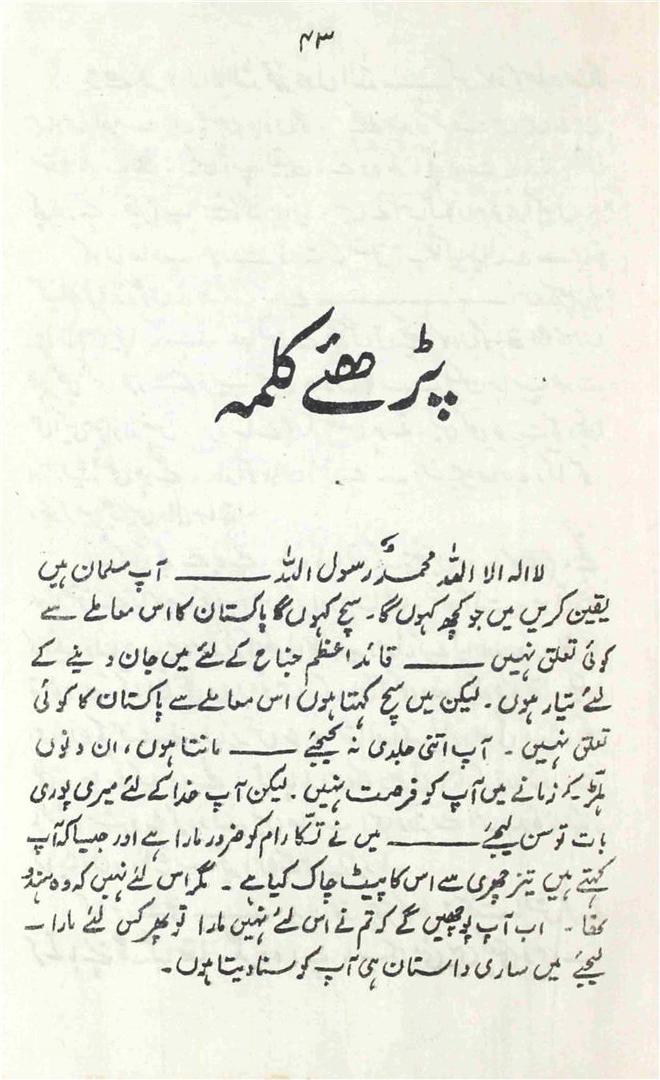 ۴۳
پڑھئے کلمہ
لا الہ الا اللہ محمدؐ رسول اللہ ——— آپ مسلمان ہیں
یقین کریں میں جو کچھ کہوں گا۔ سچ کہوں گا پاکستان کا اس معاملے سے
کوئی تعلق نہیں ——— قائد اعظم جناح کے لئے میں جان دینے کے
لئے تیار ہوں۔ لیکن میں سچ کہتا ہوں اس معاملے سے پاکستان کا کوئی
تعلق نہیں۔ آپ اتنی جلدی نہ کیجیئے ——— مانتا ہوں، ان دنوں
ہلڑ کے زمانے میں آپ کو فرصت نہیں۔ لیکن آپ خدا کے لئے میری پوری
بات تو سن لیجئے ——— میں نے تکا رام کو ضرور مارا ہے اور جیسا کہ آپ
کہتے ہیں تیز چھری سے اس کا پیٹ چاک کیا ہے۔ مگر اس لئے نہیں کہ وہ ہندو
تھا۔ اب آپ پوچھیں گے کہ تم نے اس لئے نہیں مارا تو پھر کس لئے مارا ــ
لیجیئے میں ساری داستان ہی آپ کو سنا دیتا ہوں۔